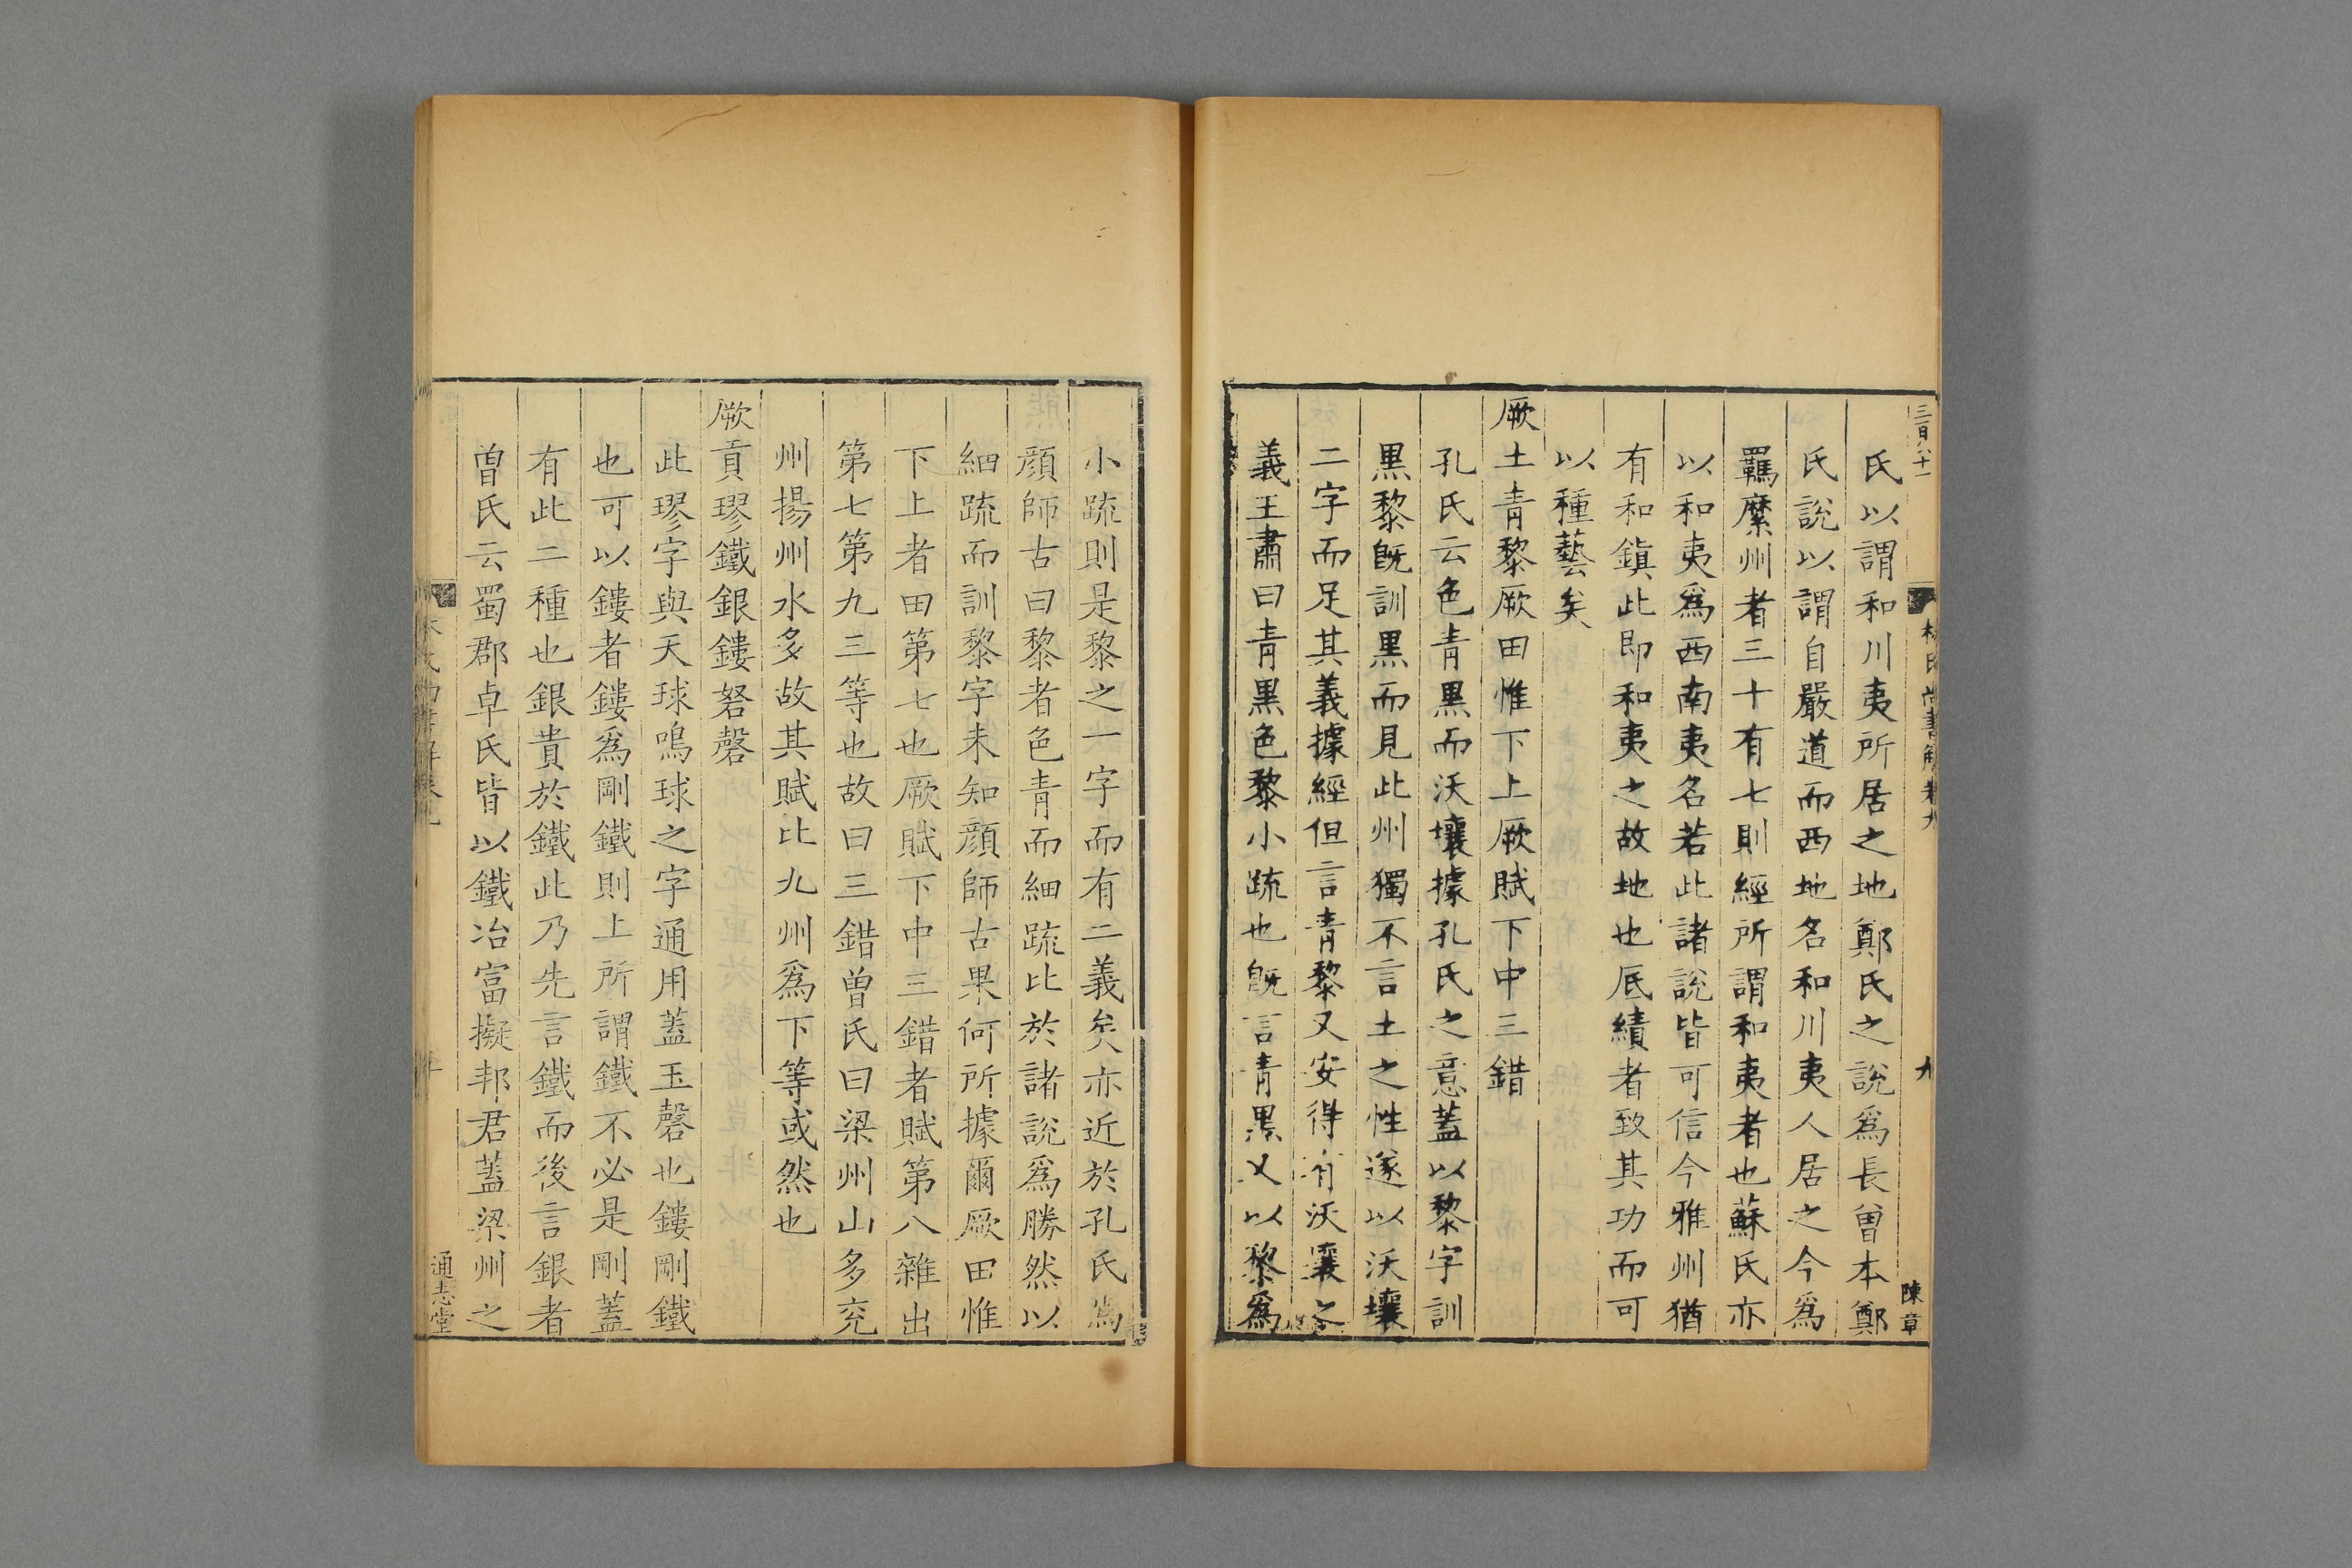 三百八十一
林氏尚書解卷九
九
陳章
氏以謂和川夷所居之地鄭氏之說爲長曾本鄭
氏說以謂自嚴道而西地名和川夷人居之今爲
羈縻州者三十有七則經所謂和夷者也蘇氏亦
以和夷爲西南夷名若此諸說皆可信今雅州猶
有和鎮此即和夷之故地也厎績者致其功而可
以種藝矣
厥土青黎厥田惟下上厥賦下中三錯
孔氏云色青黑而沃壤據孔氏之意蓋以黎字訓
黑黎旣訓黑而見此州獨不言土之性遂以沃壤
二字而足其義據經但言青黎又安得有沃壤之
義王肅曰青黑色黎小疏也旣言青黑又以黎爲
小疏則是黎之一字而有二義矣亦近於孔氏爲
顔師古曰黎者色青而細疏比於諸說爲勝然以
細疏而訓黎字未知顔師古果何所據爾厥田惟
下上者田第七也厥賦下中三錯者賦第八雜出
第七第九三等也故曰三錯曾氏曰梁州山多兖
州揚州水多故其賦比九州爲下等或然也
厥貢璆鐵銀鏤砮磬
此璆字與天球鳴球之字通用蓋玉磬也鏤剛鐵
也可以鏤者鏤爲剛鐵則上所謂鐵不必是剛蓋
有此二種也銀貴於鐵此乃先言鐵而後言銀者
曾氏云蜀郡卓氏皆以鐵冶富擬邦君蓋梁州之
通志堂